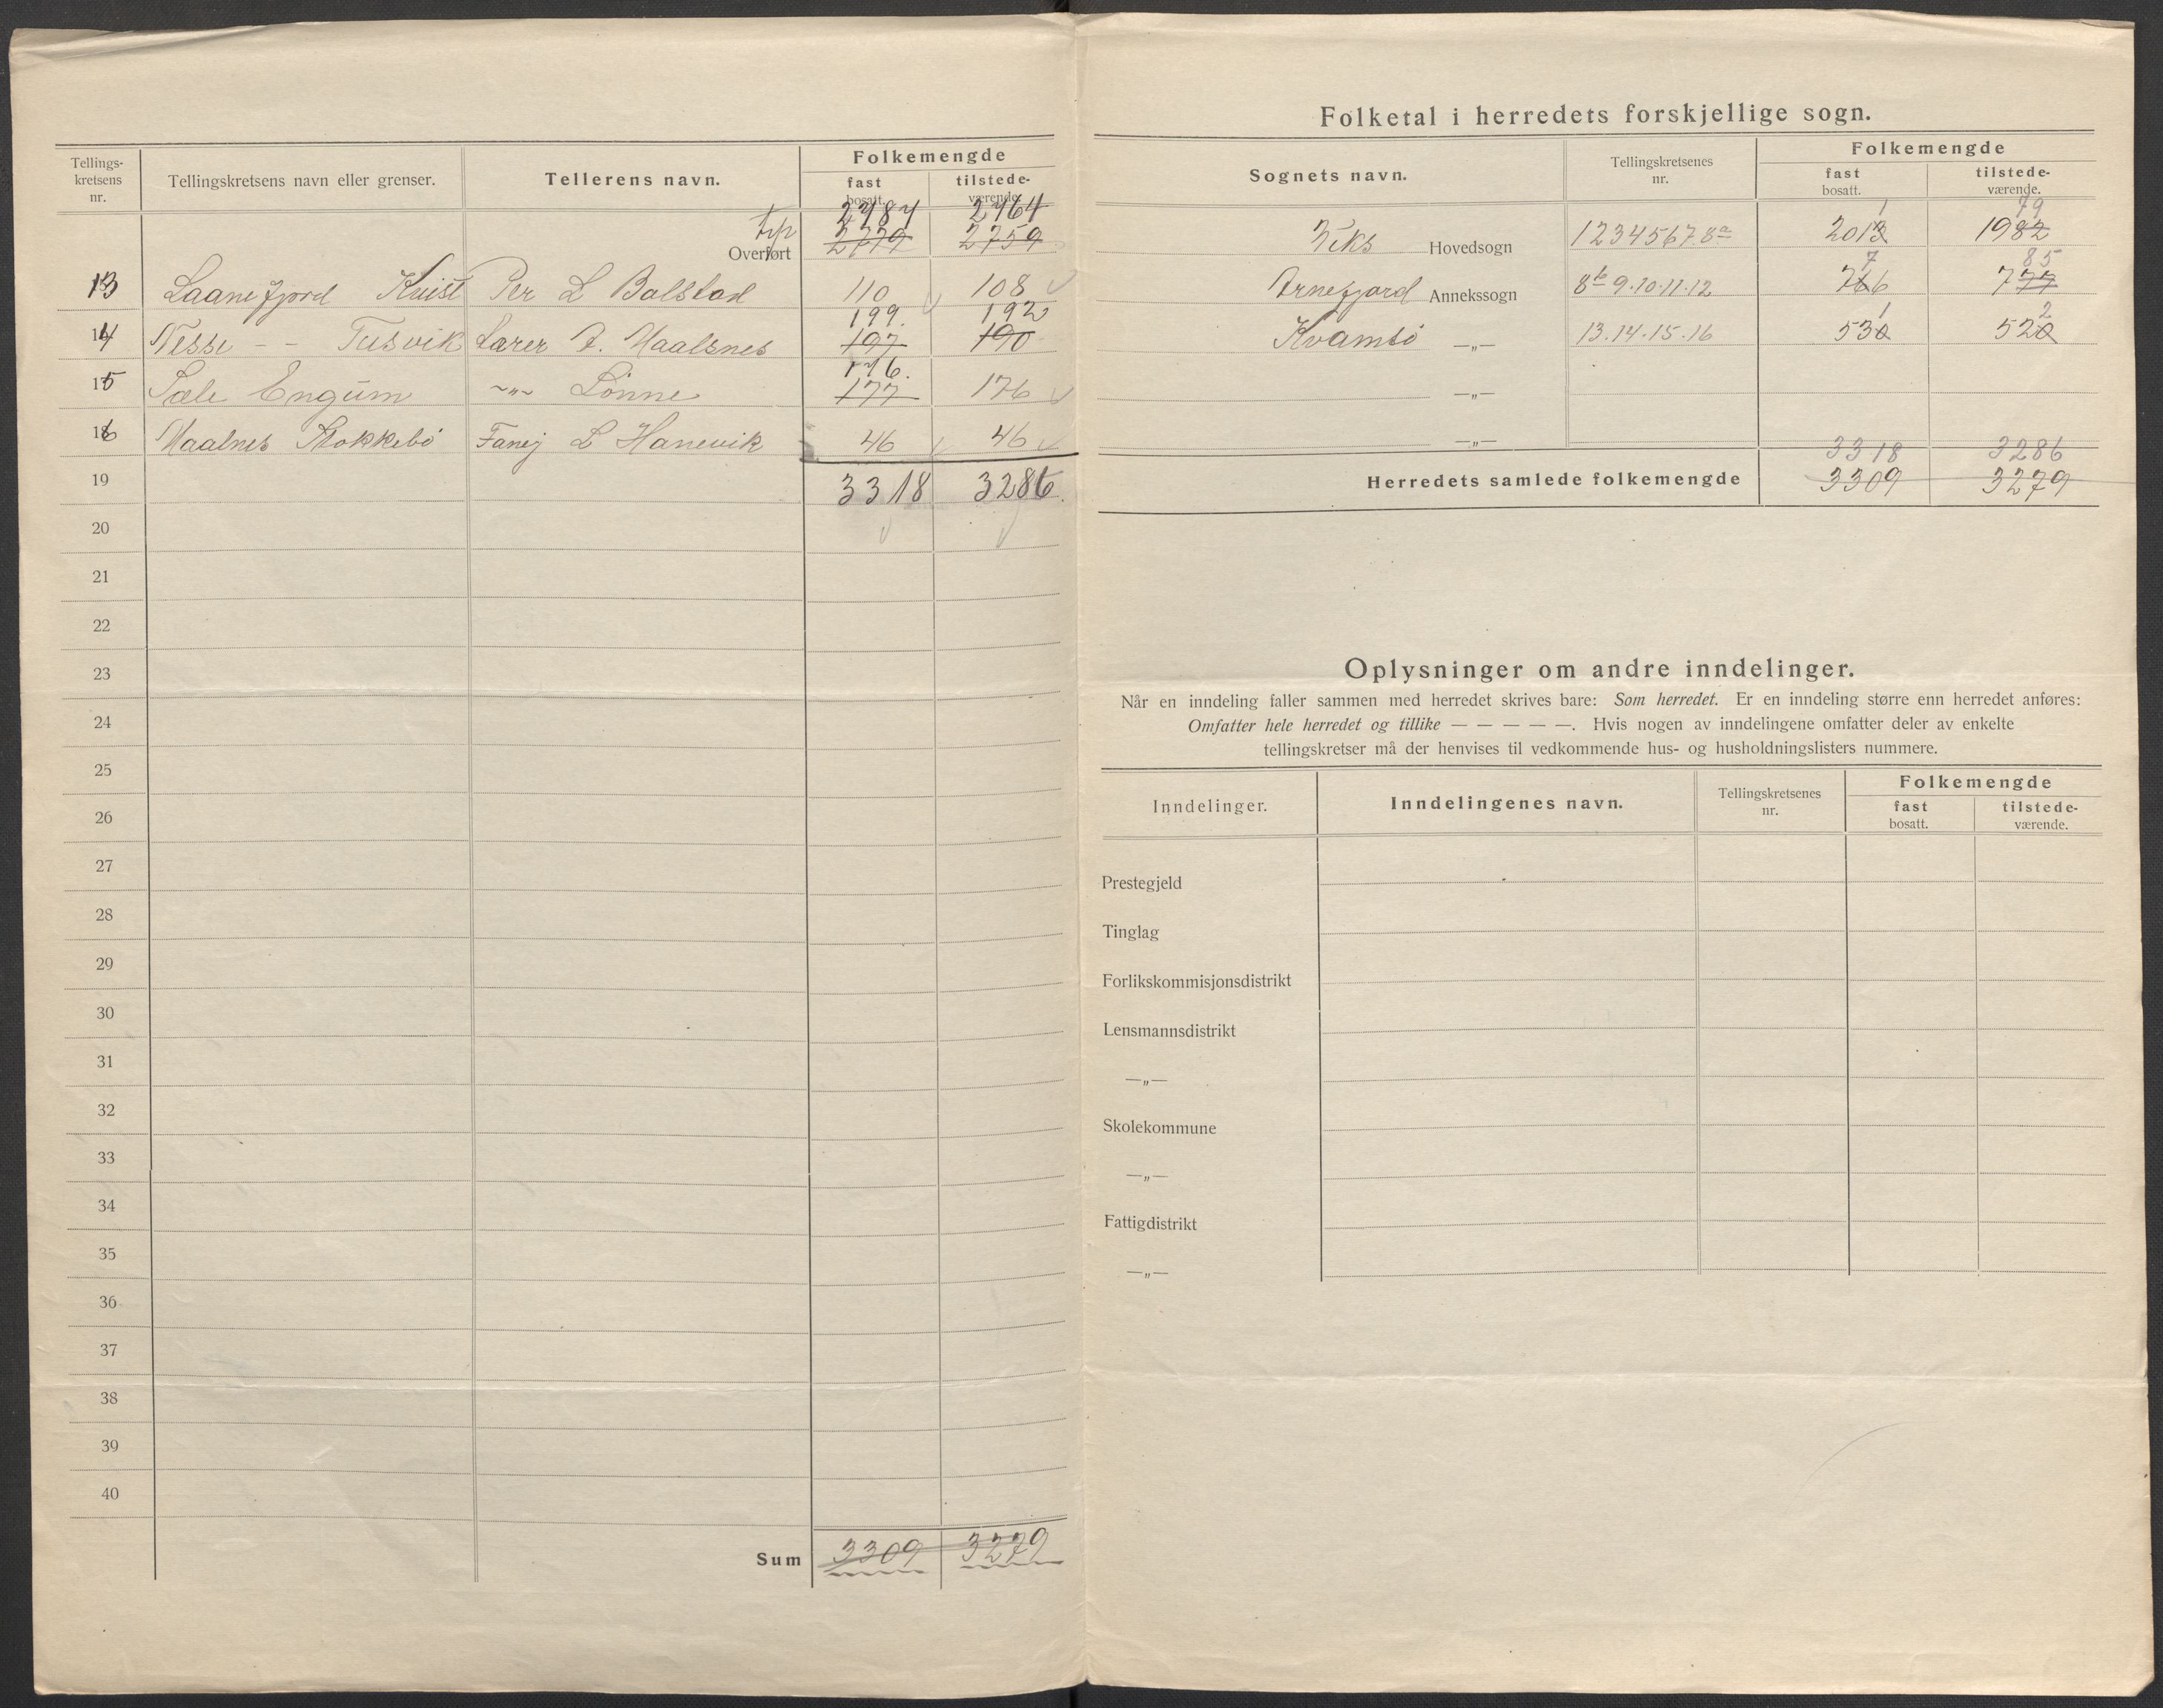 Tellings-kretsens nr. Tellingskretsens navn eller grenser. Tellerens navn. Folkemengde
fast bosatt. tilstede-værende.
2787 2764
Overført 2779 2759
13 Laanefjord Kvist Per L Bolstad 110 108
199. 192
14 Nesse - - Tusvik Lærer A. Maalsnes 197 190
176.
15 Sæle Engum -"- Lönne 177 176
16 Maalnes Stokkebö L Hanevik 46 46
19 3318 3286.
20
21
22
23
24
25
26
27
28
29
30
31
32
33
34
35
36
37
38
39
40
Sum 3309 3279
Folketal i herredets forskjellige sogn.
Sognets navn. Tellingskretsenes nr. Folkemengde
fast bosatt. tilstede-værende.
1 79
Viks Hovedsogn 1 2 3 4 5 6 7 8a 2013 1982
7 85
Arnefjord Annekssogn 8b 9.10.11.12 766 777
1 2
Kvamsö —„— 13.14.15.16 530 520
—„—
—„—
3318 3286
Herredets samlede folkemengde 3309 3279
Oplysninger om andre inndelinger.
Når en inndeling faller sammen med herredet skrives bare: Som herredet. Er en inndeling større enn herredet anføres:
Omfatter hele herredet og tillike — — — — —. Hvis nogen av inndelingene omfatter deler av enkelte
tellingskretser må der henvises til vedkommende hus- og husholdningslisters nummere.
Inndelinger. Inndelingenes navn. Tellingskretsenes nr. Folkemengde
fast bosatt. tilstede-værende.
Prestegjeld
Tinglag
Forlikskommisjonsdistrikt
Lensmannsdistrikt
—„—
Skolekommune
—„—
Fattigdistrikt
—„—